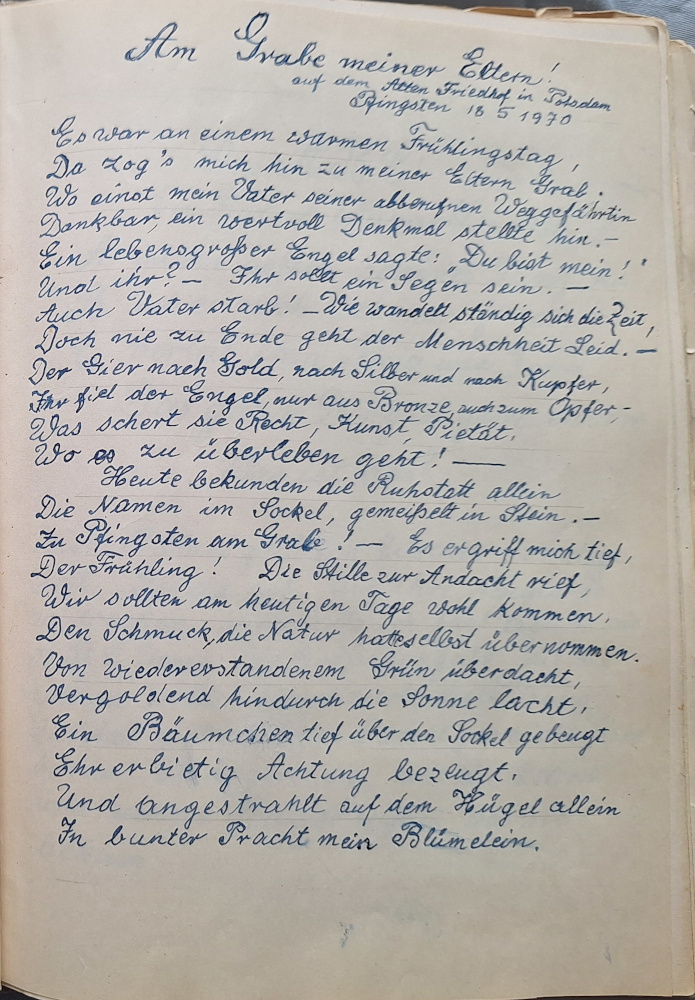 Am Grabe meiner Eltern!
auf dem Alten Friedhof in Potsdam
Pfingsten 18 5 1970
Es war an einem warmen Frühlingstag,
Da zog's mich hin zu meiner Eltern Grab.
Wo einst mein Vater seiner abberufnen Weggefährtin
Dankbar, ein wertvoll Denkmal stellte hin.–
Ein lebensgroßer Engel sagte: "Du bist mein!"
Und ihr? – Ihr sollt ein Segen sein. –
Auch Vater starb! – Wie wandelt ständig sich die Zeit,
Doch nie zu Ende geht der Menschheit Leid. –
Der Gier nach Gold, nach Silber und nach Kupfer,
Ihr fiel der Engel, nur aus Bronze, auch zum Opfer,–
Was schert sie Recht, Kunst, Pietät.
Wo es zu überleben geht! —
Heute bekunden die Ruhstatt allein
Die Namen im Sockel, gemeißelt in Stein. –
Zu Pfingsten am Grabe! – Es ergriff mich tief,
Der Frühling! Die Stille zur Andacht rief,
Wir sollten am heutigen Tage wohl kommen.
Den Schmuck, die Natur hatte selbst übernommen.
Von wiedererstandenem Grün überdacht,
Vergoldend hindurch die Sonne lacht.
Ein Bäumchen tief über den Sockel gebeugt
Ehrerbietig Achtung bezeugt.
Und angestrahlt auf dem Hügel allein
In bunter Pracht mein Blümelein.